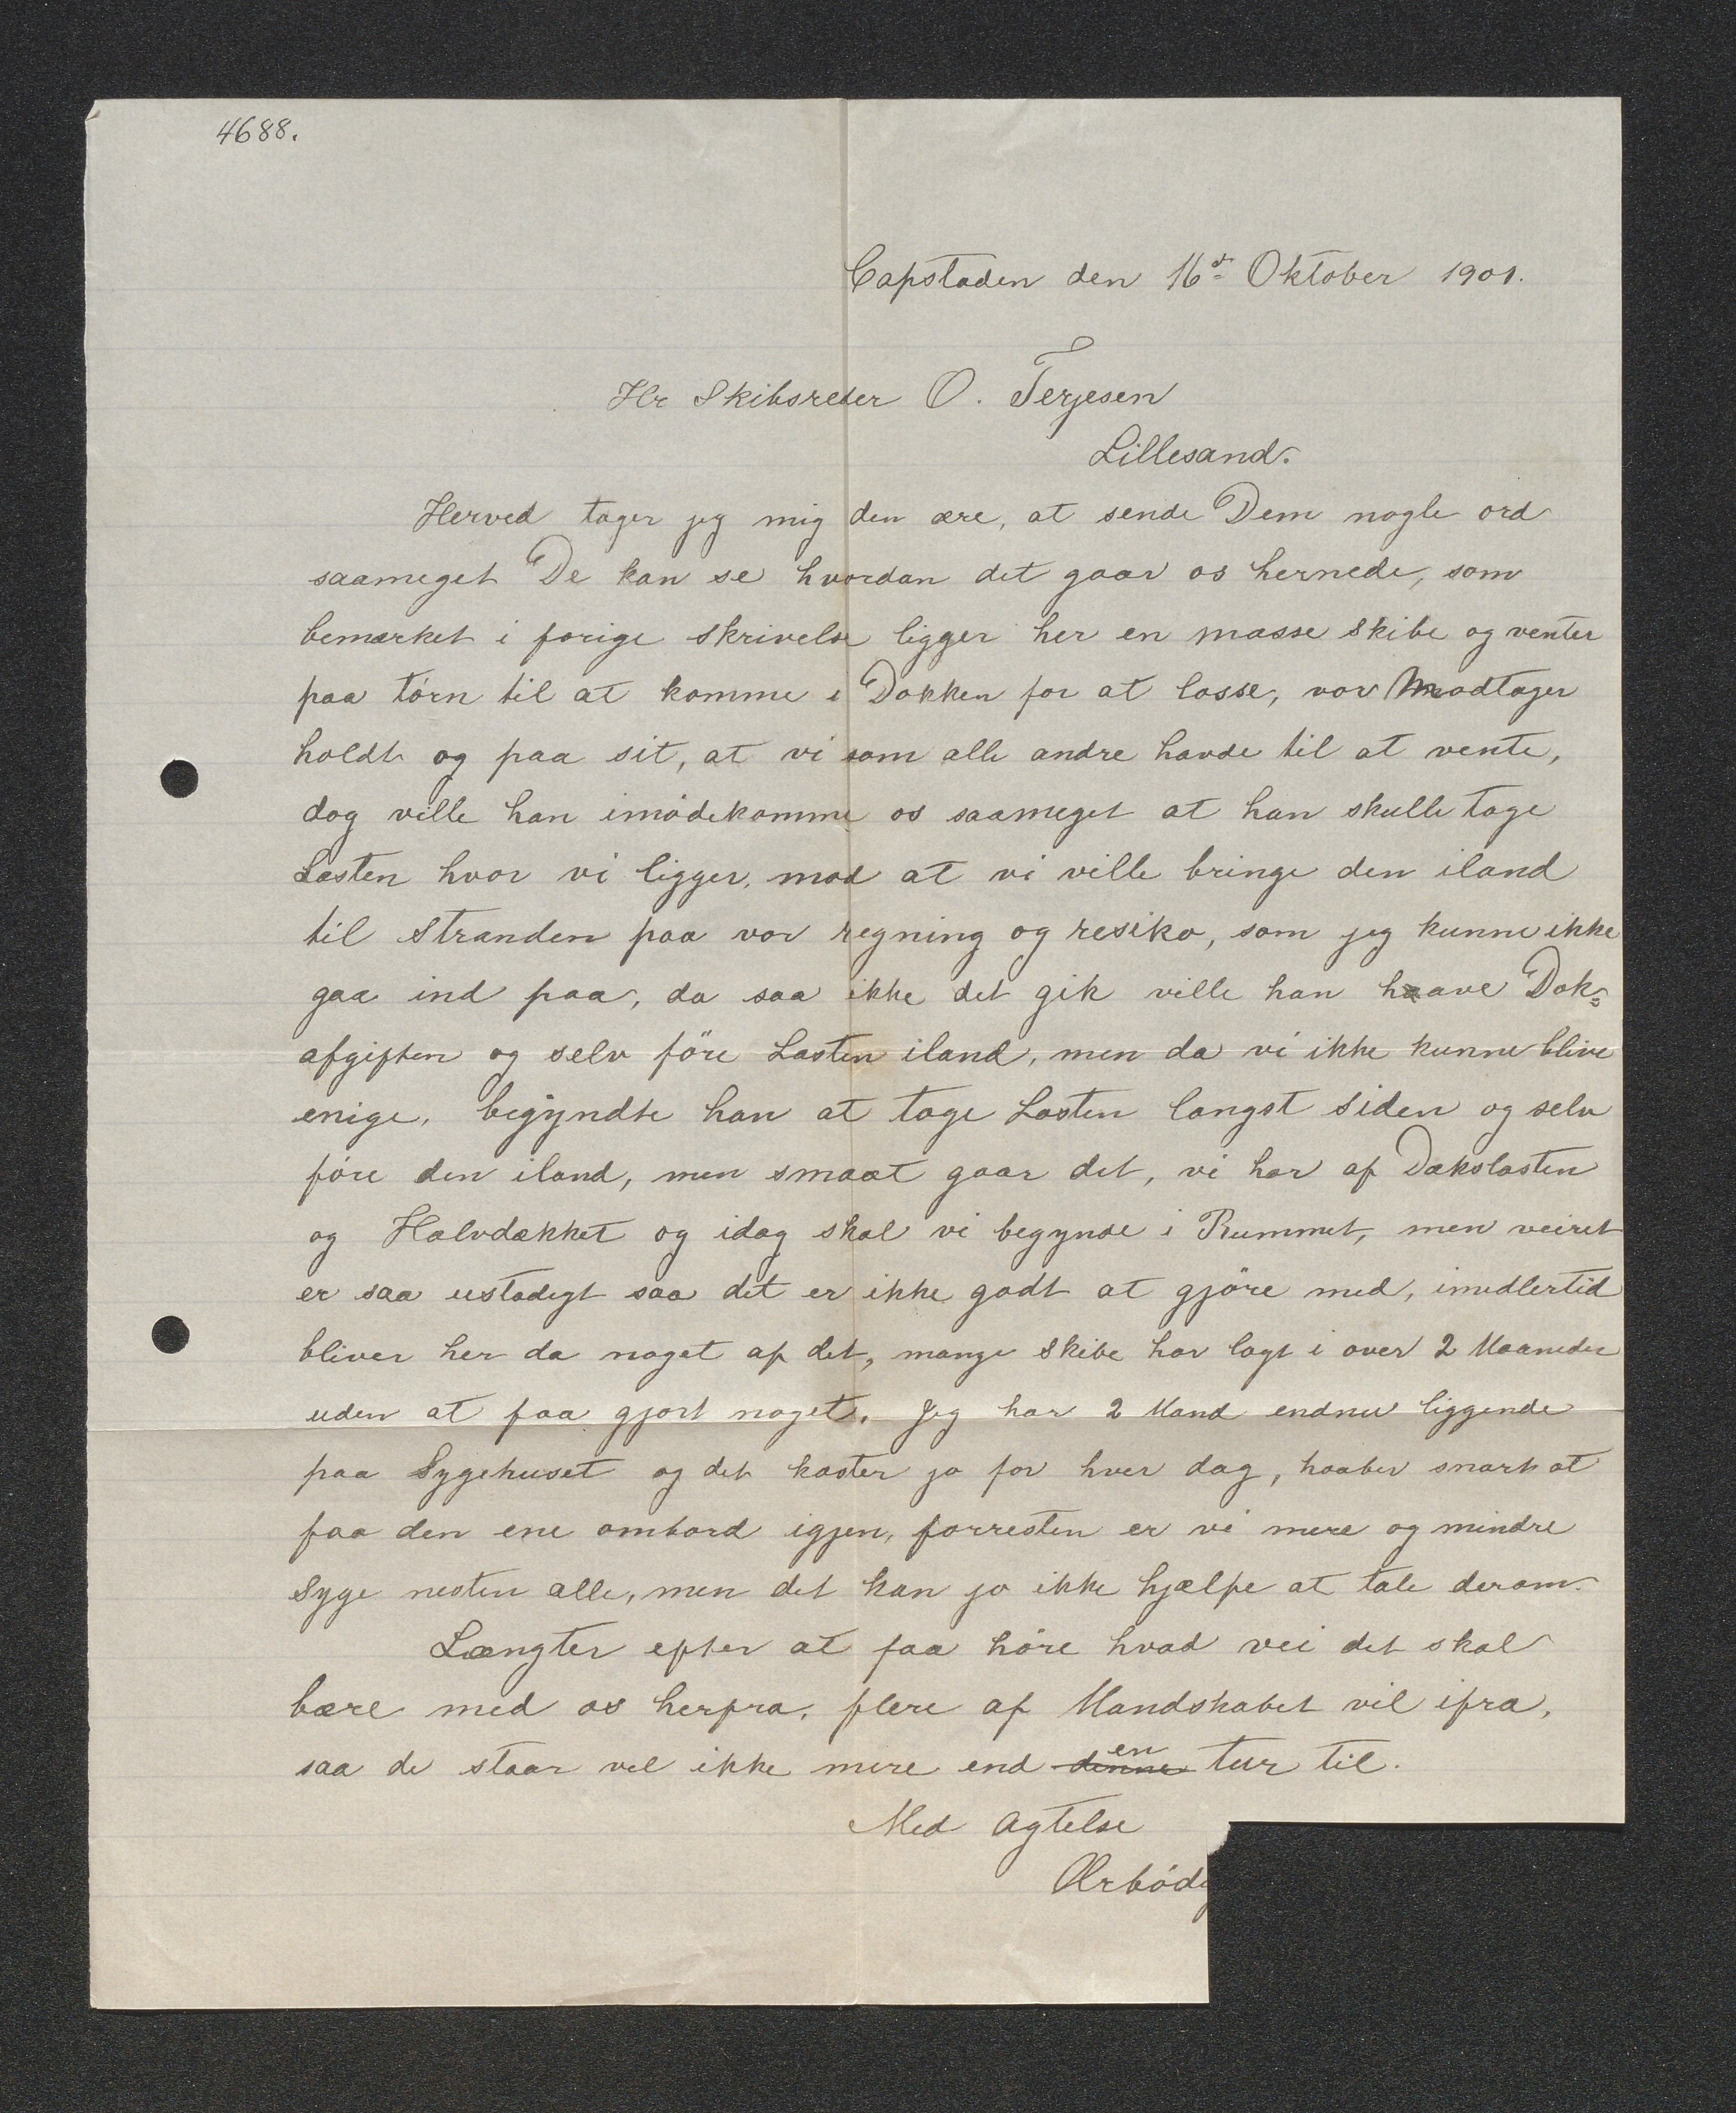 4688.
Capstaden den 16de Oktober 1901.
Hr Skibsreder O. Terjesen
Lillesand.
Herved tager jeg mig den ære, at sende Dem nogle ord
saameget De kan se hvordan det gaar os hernede, som
bemærket i forige skrivelse ligger her en masse skibe og venter
paa törn til at komme i Dokken for at losse, vor Modtager
holdt og paa sit, at vi som alle andre havde til at vente,
dog ville han imödekomme os saameget at han skulle tage
Lasten hvor vi ligger, mod at vi ville bringe den iland
til Stranden paa vor regning og resiko, som jeg kunne ikke
gaa ind paa, da saa ikke det gik ville han have Dok=
afgiften og selv före Lasten iland, men da vi ikke kunne blive
enige, begyndte han at tage Lasten langst siden og selv
före den iland, men smaat gaar det, vi har af Dækslasten
og Halvdækket og idag skal vi begynde i Rummet, men veiret
er saa ustadigt saa det er ikke godt at gjöre med, imidlertid
bliver her da noget af det, mange skibe har lagt i over 2 Maaneder
uden at faa gjort noget. Jeg har 2 Mand endnu liggende
paa Sygehuset og det koster jo for hver dag, haaber snart at
faa den ene ombord igjen, forresten er vi mere og mindre
Syge nesten alle, men det kan jo ikke hjælpe at tale derom.
Længter efter at faa höre hvad vei det skal
bære med os herfra, flere af Mandskabet vil ifra,
saa de staar vel ikke mere end denne en tur til.
Med Agtelse
Ærbödig